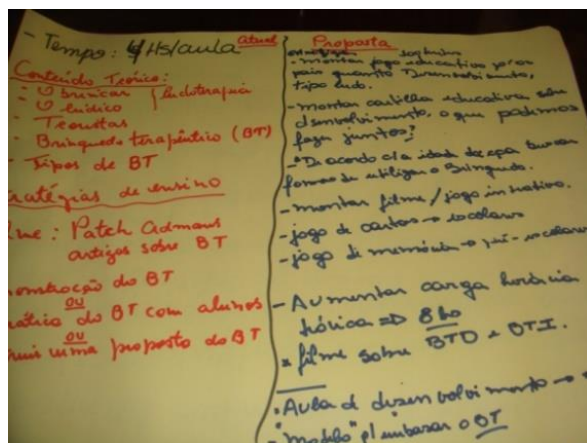 - Tempo: 4 Hs/aula Atual
Conteúdo Teórico:
- O brincar
- O lúdico / ludoterapia
- Teoristas
- Brinquedo terapêutico (BT)
- Tipos de BT
tratégias de ensino
lme: Patch Adams
artigos sobre BT
monstração do BT
ou
rática do BT com alunos
ou
uma proposta do BT
Proposta
- montar jogo educativo p/ os
pais quanto Desenvolvimento,
tipo ludo.
- montar cartilha educativa sobre
desenvolvimento, o que podemos
fazer juntos?
- De acordo c/ a idade buscar
formas de utilizar o Brinquedo.
- montar filme / jogo
- jogo de cartas → escolares
- jogo de memória → pré-escolares
- Aumentar carga horária
teórica ⇒ 8 hs
* filme sobre BTD e BTI.
• Aula d desenvolvimento →
"modelo" p/ embasar o BT